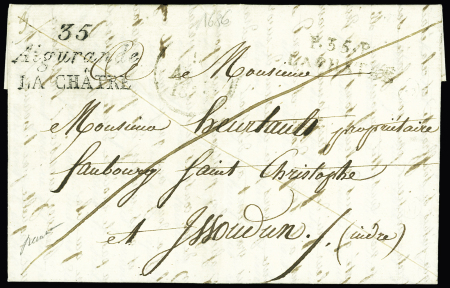 1656
35
Aigurande
LA CHÂTRE
P.35.P
LA CHÂTRE
a Monsieur
Monsieur heurtault propriétaire
faubourg Saint Christophe
et Issoudun . / . (indre)